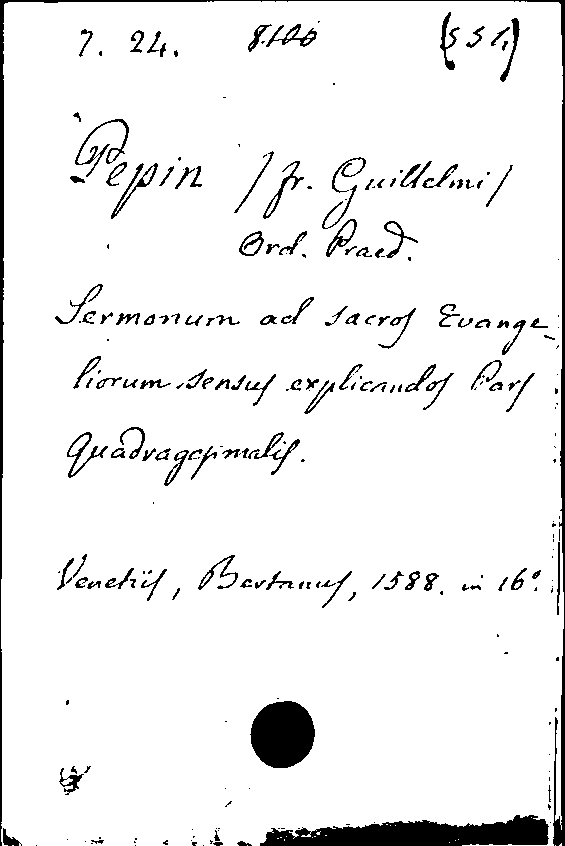 7. 24. 8.100 (551.)
Pepin /fr. Guillelmi/
Ord. Praed.
Sermonum ad sacros Evange-
liorum sensus explicandos Pars
Quadragesimalis.
Venetiis, Bertanus, 1588. in 16º.